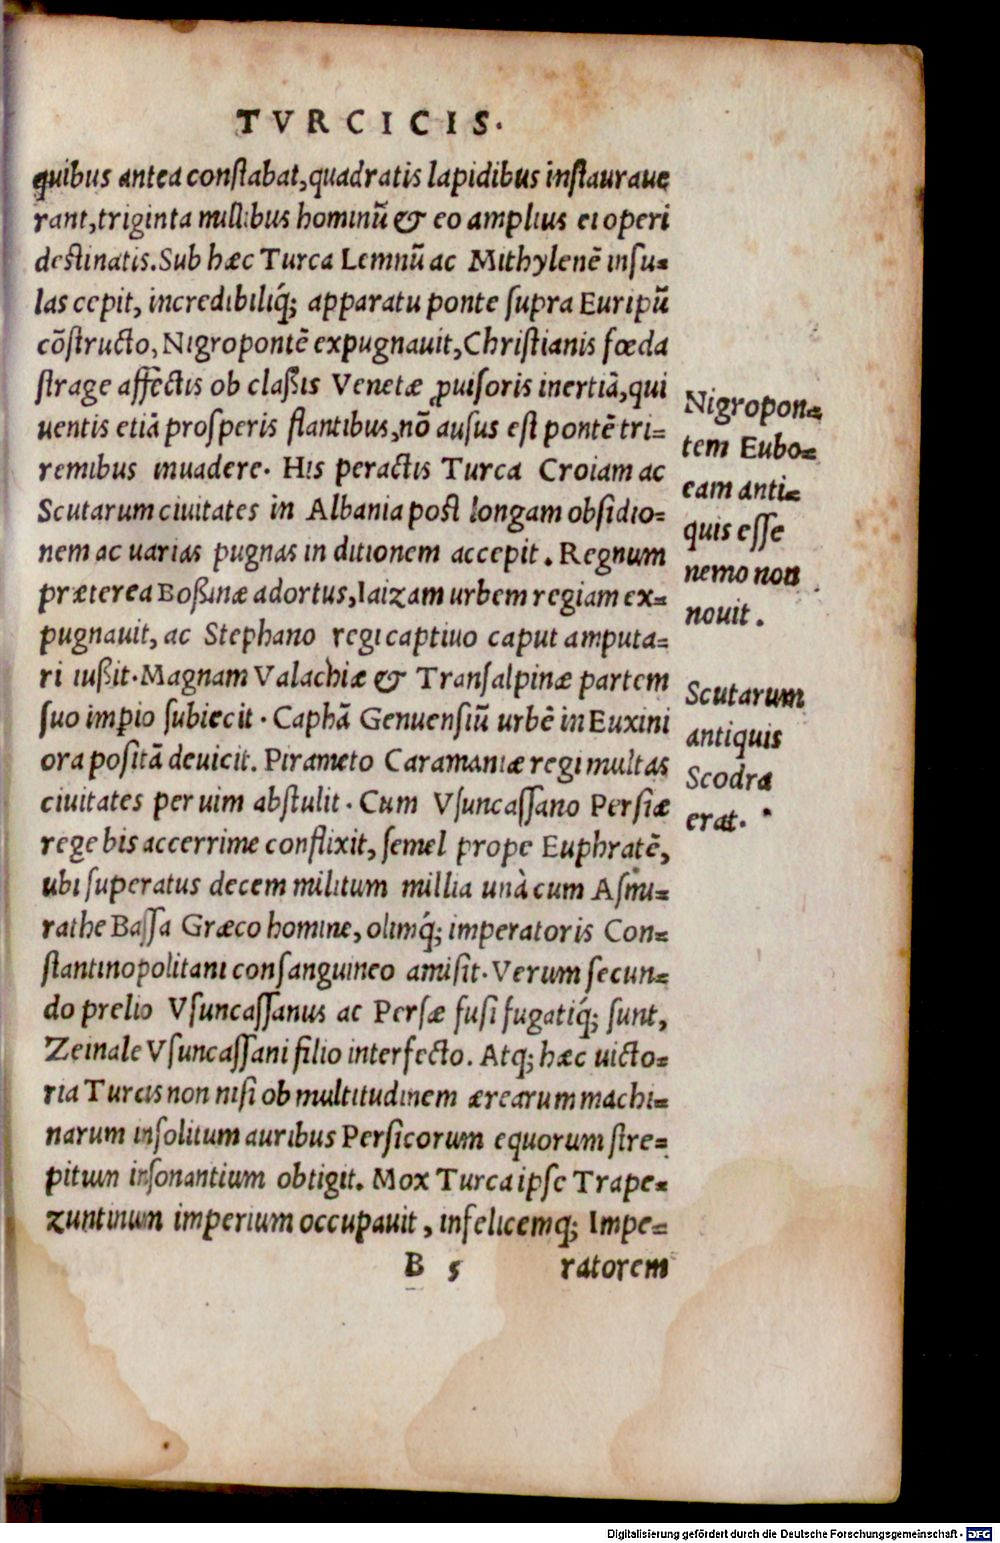 TVRCICIS.
quibus antea constabat, quadratis lapidibus instauraue
rant, triginta millibus hominũ & eo amplius ei operi
destinatis. Sub hæc Turca Lemnũ ac Mithylenẽ insu-
las cepit, incredibiliq́; apparatu ponte supra Euripũ
cõstructo, Nigropontẽ expugnauit, Christianis fœda
strage affectis ob claßis Venetæ ꝓuisoris inertiã, qui
uentis etiã prosperis flantibus, nõ ausus est pontẽ tri-
remibus inuadere. His peractis Turca Croiam ac
Scutarum ciuitates in Albania post longam obsidio-
nem ac uarias pugnas in ditionem accepit. Regnum
præterea Boßinæ adortus, Iaizam urbem regiam ex-
pugnauit, ac Stephano regi captiuo caput amputa-
ri iußit. Magnam Valachiæ & Transalpinæ partem
suo imp̱io subiecit. Caphã Genuensiũ urbẽ in Euxini
ora positã deuicit. Pirameto Caramaniæ regi multas
ciuitates per uim abstulit. Cum Vsuncassano Persiæ
rege bis accerrime conflixit, semel prope Euphratẽ,
ubi superatus decem militum millia unà cum Asmu-
rathe Bassa Græco homine, olimq́; imperatoris Con-
stantinopolitani consanguineo amisit. Verum secun-
do prelio Vsuncassanus ac Persæ fusi fugatiq́; sunt,
Zeinale Vsuncassani filio interfecto. Atq; hæc uicto-
ria Turcis non nisi ob multitudinem ærearum machi-
narum insolitum auribus Persicorum equorum stre-
pitum insonantium obtigit. Mox Turca ipse Trape-
zuntinum imperium occupauit, infelicemq; Impe-
B 5 ratorem
Nigropon-
tem Eubo-
eam anti-
quis esse
nemo non
nouit.
Scutarum
antiquis
Scodra
erat.
Digitalisierung gefördert durch die Deutsche Forschungsgemeinschaft - DFG